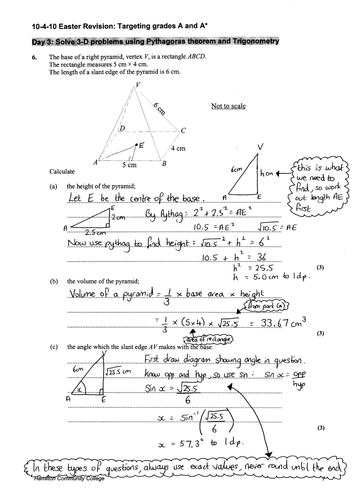 10-4-10 Easter Revision: Targeting grades A and A*
Day 3: Solve 3-D problems using Pythagoras theorem and Trigonometry
6. The base of a right pyramid, vertex V, is a rectangle ABCD.
The rectangle measures 5 cm × 4 cm.
The length of a slant edge of the pyramid is 6 cm.
V
6 cm
Not to scale
D
C
E
4 cm
A
5 cm
B
V
6cm
hcm
A
E
this is what
we need to
find, so work
out length AE
first
Calculate
(a) the height of the pyramid;
Let E be the centre of the base.
E
2cm
A
2.5cm
By Pythag: 2² + 2.5² = AE²
10.5 = AE² √10.5 = AE
Now use pythag to find height: √10.5² + h² = 6²
10.5 + h² = 36
h² = 25.5
h = 5.0 cm to 1dp.
(3)
(b) the volume of the pyramid;
Volume of a pyramid = 1/3 × base area × height
from part (a)
= 1/3 × (5×4) × √25.5 = 33.67 cm³
area of rectangle
(3)
(c) the angle which the slant edge AV makes with the base.
6cm
√25.5 cm
x
A
E
First draw diagram showing angle in question.
Know opp and hyp, so use sin: sin x = opp/hyp
Sin x = √25.5/6
x = Sin⁻¹(√25.5/6)
x = 57.3° to 1dp.
(3)
In these types of questions, always use exact values, never round until the end
Hamilton Community College